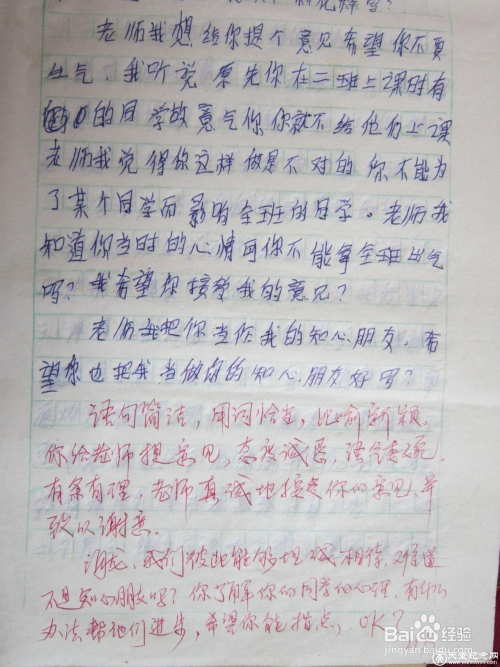 老师我想给你提个意见希望你不要
生气。我听说原先你在二班上课时有
的同学故意气你你就不给他们上课
老师我觉得你这样做是不对的你不能为
了某个同学而影响全班的同学。老师我
知道你当时的心情可你不能拿全班出气
吗？我希望你接受我的意见？
老师我把你当作我的知心朋友 希
望你也把我当做你的知心朋友好吗？
语句简洁，用词恰当，比喻新颖。
你给老师提意见，态度诚恳，语气委婉，
有条有理，老师真诚地接受你的意见，并
致以谢意。
我们彼此能够坦诚相待，难道
不是知心朋友吗？你了解你的同学的心理，有什么
办法帮他们进步，希望你能指点，OK？
Bai度经验
jingyan.baidu.com
天堂纪念网